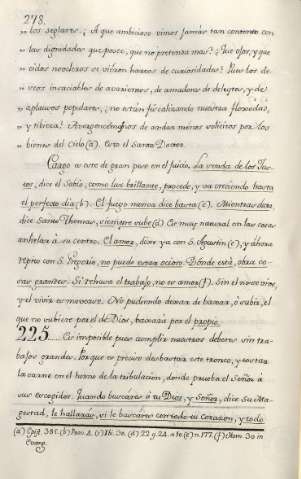 278.
" los seglares. ¿A que ambicioso vimos jamàs tan contento con
" las dignidades que posee, que no pretenda mas? ¿Que ojos, y que
" oidos noechaos se viéron hartos de curiosidades?
" seos insaciables de acariciones, de amadores de deleytes, y de
" aplausos populares, ¿no están fiscalizando nuestra
" y tibieza? Avergoncemonos de andar menos solícitos por los
" bienes del Cielo (a). Esto el Santo
Cargo es este de gran peso en el Juicio. La senda de los Jus-
tos, dice el Sabio, como luz brillante, procede, y va creciendo hasta
el perfecto dia (b). El fuego nunca dice basta (c). Mientras dura
dice Santo Thomas, siempre sube (d). Es muy natural en las cosas
anhelar à su centro. El amor, dixe ya con S. Agustin (e), y ahora
repito con S. Gregorio, no puede estar ocioso. Donde está, obra co-
sas grandes. Si rehusa el trabajo, no es amor (f). Sin el move-
y el vivir es moverse. No pudiendo dexar de baxar, ò subir, el
que no subiere por el de Dios, baxará por el propio.
225 Es imposible pues cumplir nuestros deberes sin tra-
bajos grandes. Porque es preciso desbastar este tronco, y costar
la carne en el horno de la tribulacion, donde prueba el Señor à
sus escogidos. Quando buscares à tu Dios, y Señor, dice su Ma-
gestad, le hallarás, si le buscares con todo tu corazon, y todo
(a) Epist. 385. (b) Prov. 4. (c) Ib. 30. (d) 2.2 q. 24. a 10 (e) n. 177. (f) Hom. 30 in
Evang.